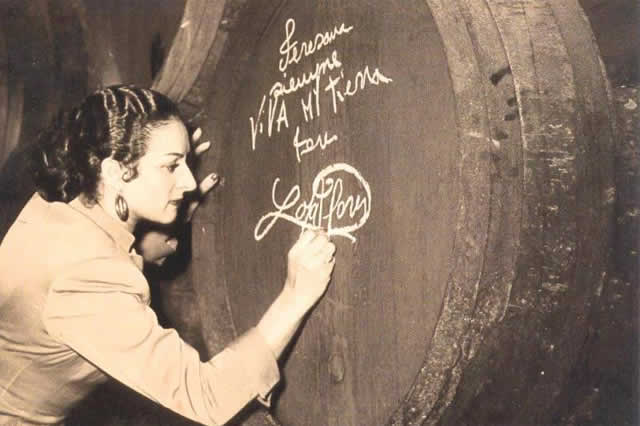 Jeresana
siempre
ViVA Mi tierra
Lola Flores